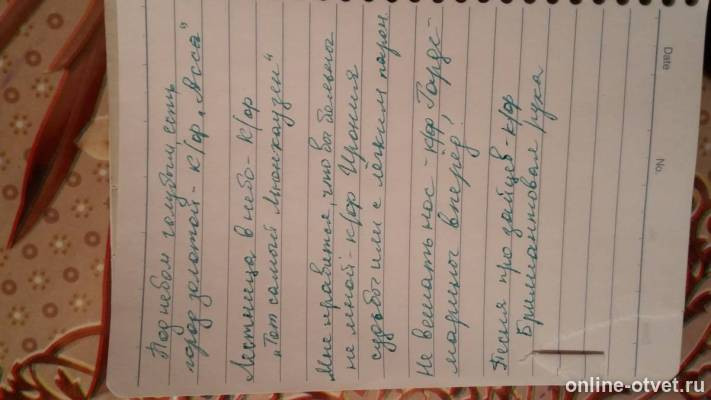 Под небом голубым есть
город золотой - к/ф „Асса"
Лестница в небо - к/ф
„Тот самый Мюнхаузен"
Мне нравится, что вы больны
не мной - к/ф Ирония
судьбы или с лёгким паром
Не вешать нос - к/ф Гарде-
марины вперёд!
Песня про зайцев - к/ф
Бриллиантовая рука
Date
No.
online-otvet.ru